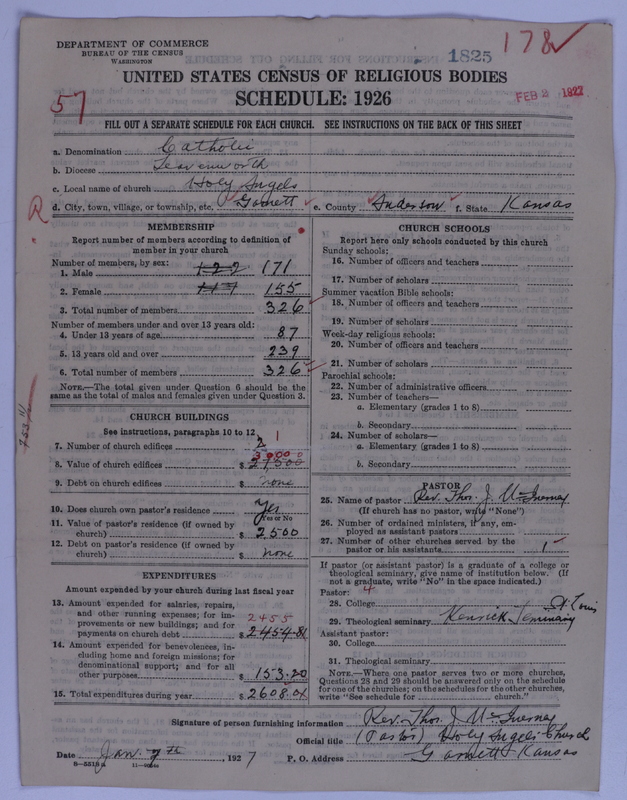 DEPARTMENT OF COMMERCE
BUREAU OF THE CENSUS
WASHINGTON
1825
178
UNITED STATES CENSUS OF RELIGIOUS BODIES
57
SCHEDULE: 1926
FEB 2 1927
FILL OUT A SEPARATE SCHEDULE FOR EACH CHURCH. SEE INSTRUCTIONS ON THE BACK OF THIS SHEET
a. Denomination Catholic
b. Diocese Leavenworth
c. Local name of church Holy Angels
R
d. City, town, village, or township, etc. Garnett e. County Anderson f. State Kansas
MEMBERSHIP
Report number of members according to definition of
member in your church
Number of members, by sex:
1. Male 122 171
2. Female 117 155
3. Total number of members 326
Number of members under and over 13 years old:
4. Under 13 years of age 87
5. 13 years old and over 239
6. Total number of members 326
NOTE.—The total given under Question 6 should be the
same as the total of males and females given under Question 3.
CHURCH BUILDINGS
See instructions, paragraphs 10 to 12
7. Number of church edifices 2 1
8. Value of church edifices $ 27,500
9. Debt on church edifices $ none
10. Does church own pastor's residence Yes
Yes or No
11. Value of pastor's residence (if owned by
church) $ 2500
12. Debt on pastor's residence (if owned by
church) $ none
EXPENDITURES
Amount expended by your church during last fiscal year
13. Amount expended for salaries, repairs,
and other running expenses; for im-
provements or new buildings; and for
payments on church debt $ 2454.81
2455
14. Amount expended for benevolences, in-
cluding home and foreign missions; for
denominational support; and for all
other purposes $ 153.20
15. Total expenditures during year $ 2608.01
CHURCH SCHOOLS
Report here only schools conducted by this church
Sunday schools:
16. Number of officers and teachers
17. Number of scholars
Summer vacation Bible schools:
18. Number of officers and teachers
19. Number of scholars
Week-day religious schools:
20. Number of officers and teachers
21. Number of scholars
Parochial schools:
22. Number of administrative officers
23. Number of teachers—
a. Elementary (grades 1 to 8)
b. Secondary
24. Number of scholars—
a. Elementary (grades 1 to 8)
b. Secondary
PASTOR
25. Name of pastor Rev. Thos. J. McInerney
(If church has no pastor, write "None")
26. Number of ordained ministers, if any, em-
ployed as assistant pastors
27. Number of other churches served by the
pastor or his assistants 1
If pastor (or assistant pastor) is a graduate of a college or
theological seminary, give name of institution below. (If
not a graduate, write "No" in the space indicated.)
Pastor: 4
28. College St Louis
29. Theological seminary Kenrick Seminary
Assistant pastor:
30. College
31. Theological seminary
NOTE.—Where one pastor serves two or more churches,
Questions 28 and 29 should be answered only on the schedule
for one of the churches; on the schedules for the other churches,
write "See schedule for church."
Signature of person furnishing information Rev. Thos. J. McInerney
Official title (Pastor) Holy Angels Church
Date Jan. 7th, 1927 P. O. Address Garnett Kansas